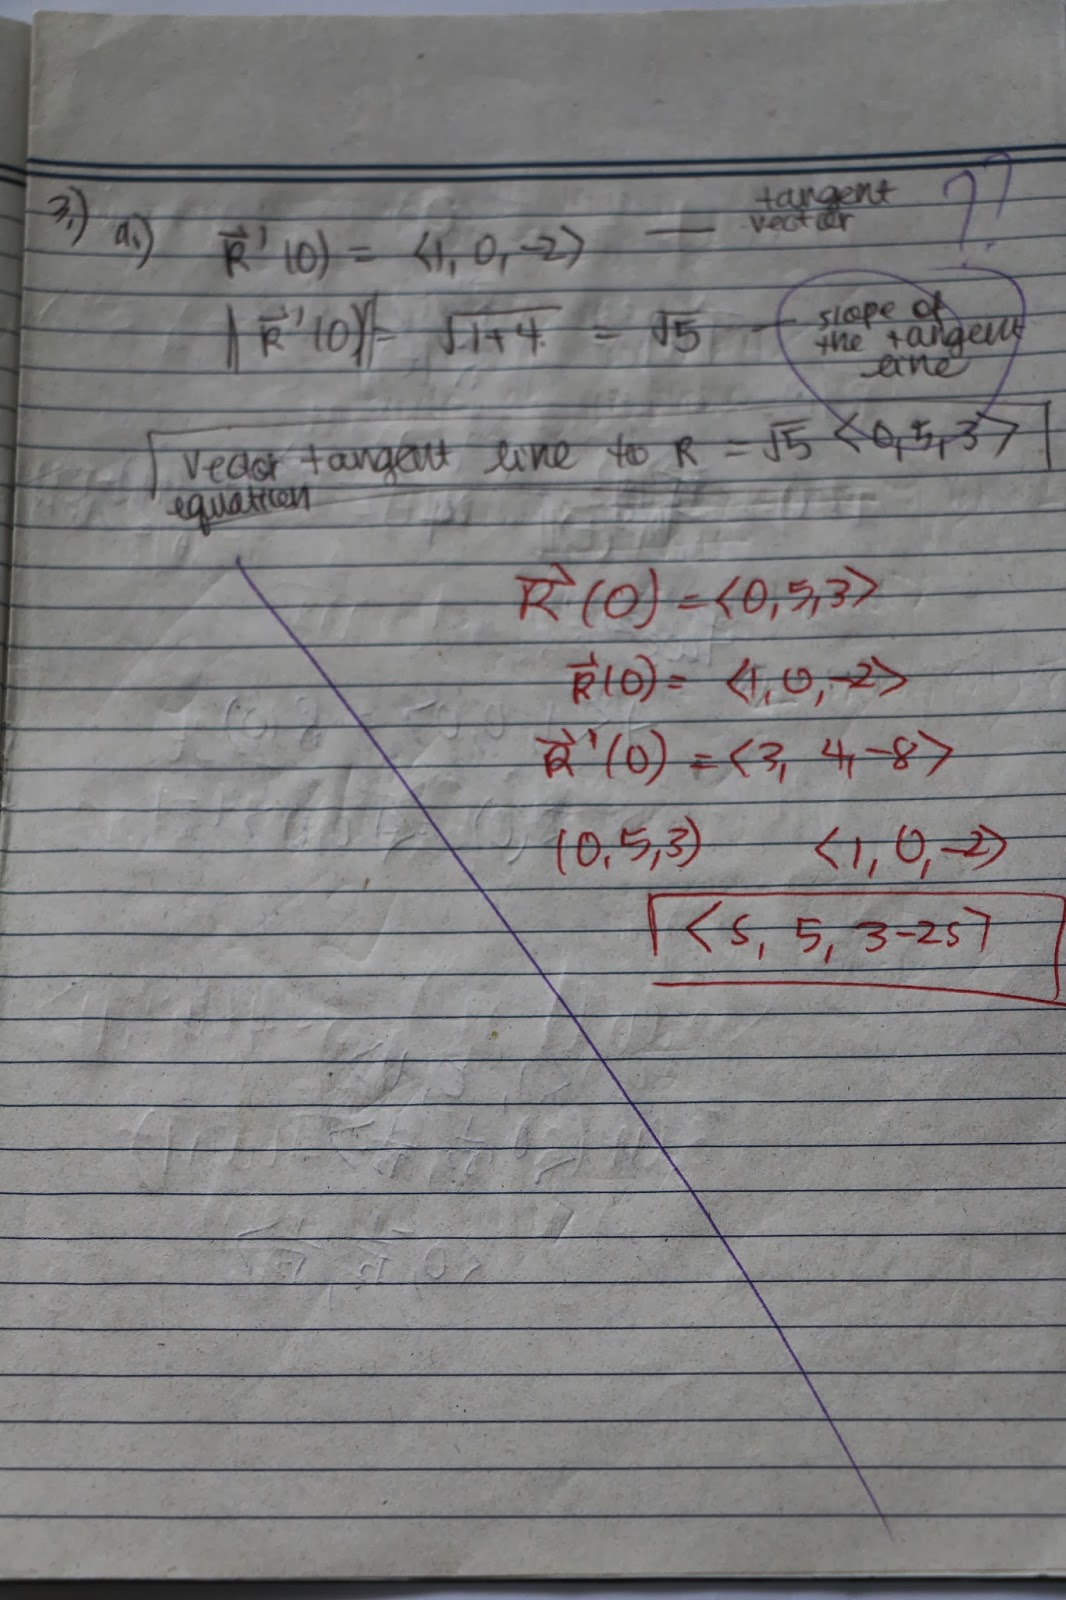 3.) a.) R⃗'(0) = ⟨1, 0, -2⟩ — tangent vector ??
|R⃗'(0)| = √1+4 = √5 — slope of the tangent line
vector tangent line to R = √5 ⟨0, 5, 3⟩
equation
R⃗(0) = ⟨0, 5, 3⟩
R⃗(0) = ⟨1, 0, -2⟩
R⃗'(0) = ⟨3, 4, -8⟩
(0, 5, 3) ⟨1, 0, -2⟩
⟨s, 5, 3-2s⟩